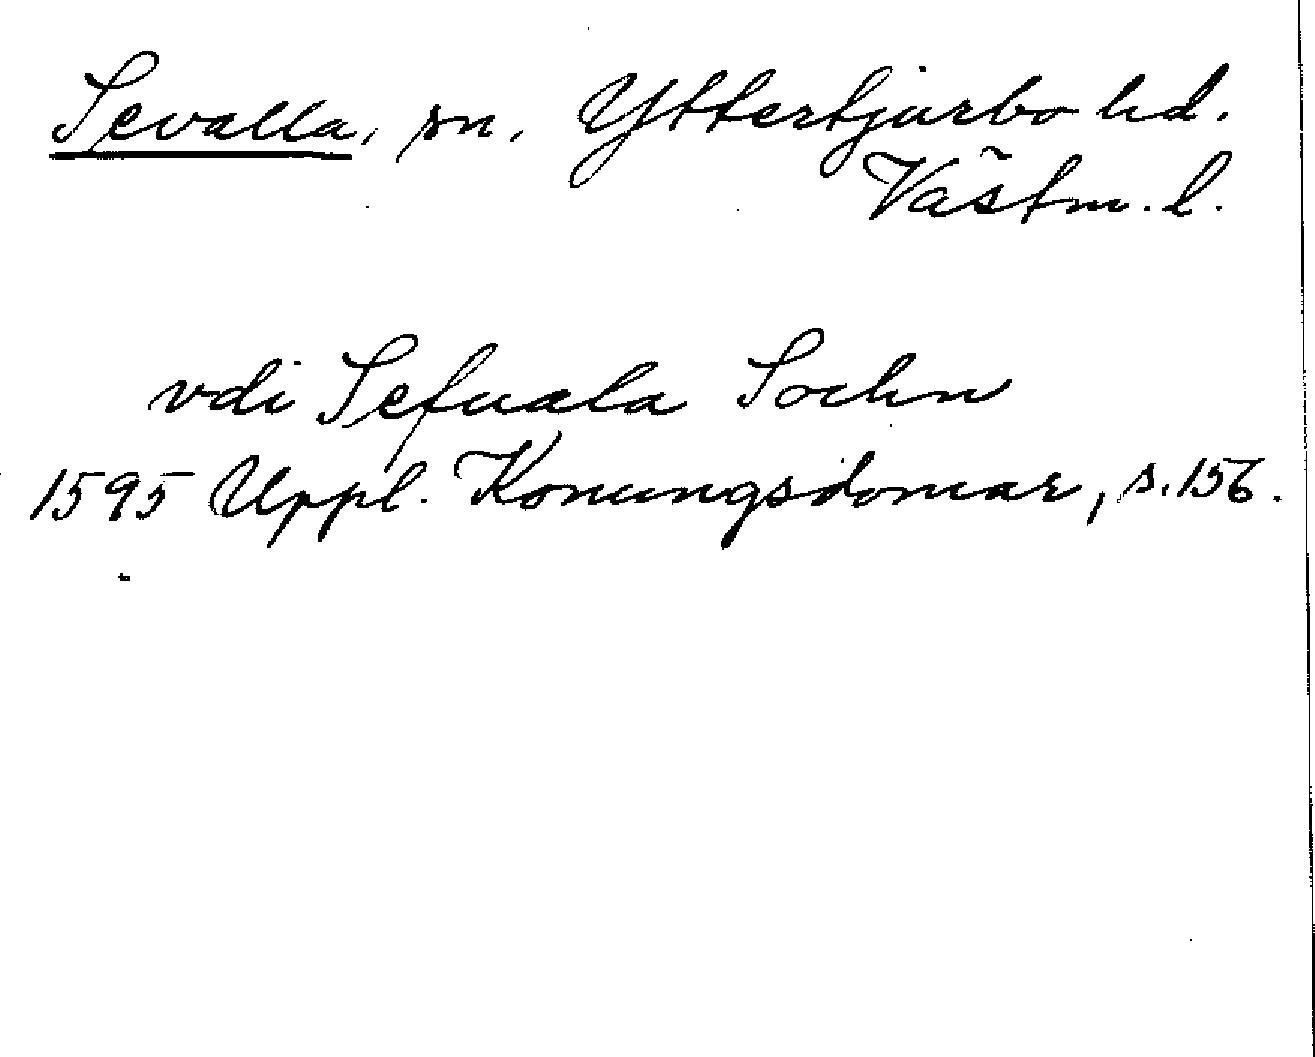 Sevalla, sn. Yttertjurbo hd.
Västm. l.
vdi Sefuala Sochn
1595 Uppl. Konungsdomar, s. 156.